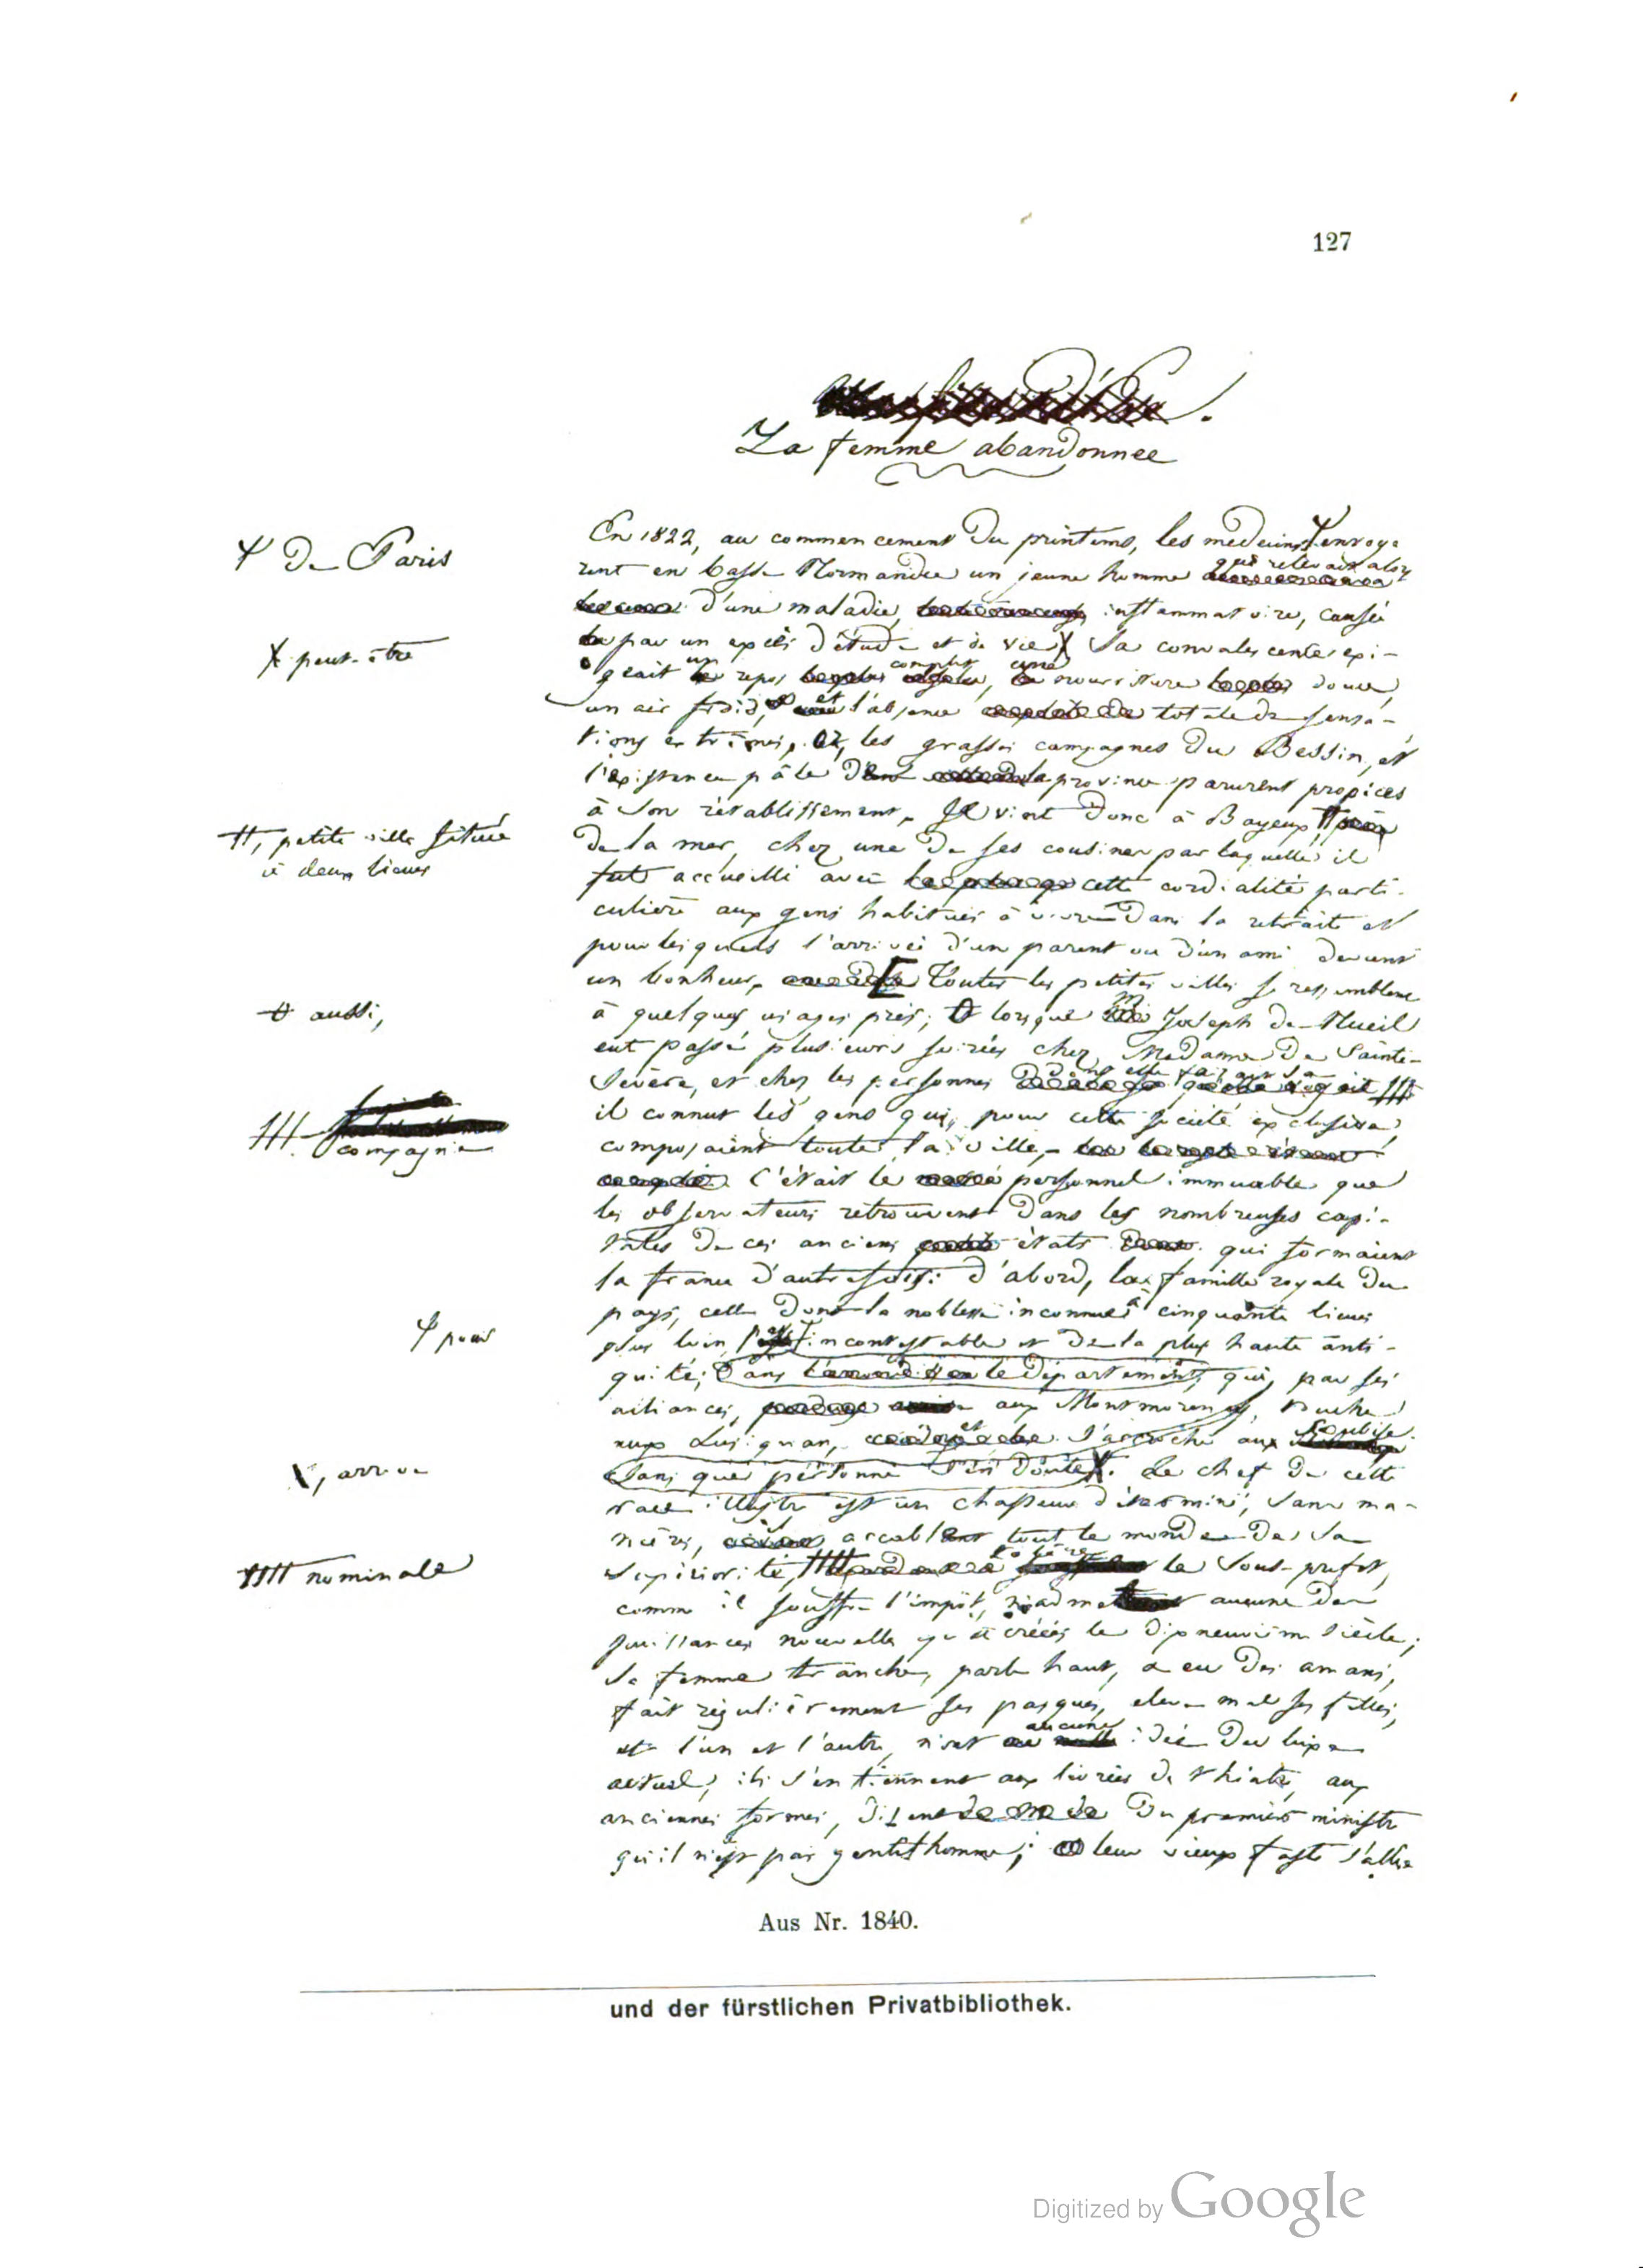 127
La femme abandonnee
Ꞙ De Paris
En 1822, au commencement du printems, les medecins Ꞙ envoyè
rent en basse Normandie un jeune homme qui relevait alors
d'une maladie inflammatoire, causée
par un excès d'étude et de vie X Sa convalescence exi-
X peut-être
geait un repos complet, une nourriture douce,
un air froid, et l'absence totale de sensa-
tions extrêmes. Or, les grasses campagnes du Bessin, et
l'existence pâle de la province parurent propices
à son rétablissement. Il vint donc à Bayeux, #
#, petite ville située
à deux lieues
de la mer, chez une de ses cousines par laquelle il
fut accueilli avec cette cordialité parti-
culière aux gens habitués à vivre dans la retraite et
pour lesquels l'arrivée d'un parent ou d'un ami devient
un bonheur. [ Toutes les petites villes se ressemblent
à quelques usages près; lorsque M Joseph de Nueil
aussi,
eut passé plusieurs soirées chez Madame de Sainte-
Sévère, et chez les personnes dont elle faisait sa
compagnie
il connut les gens qui, pour cette société exclusive,
composaient toute la ville.
C'était le personnel immuable que
les observateurs retrouvent dans les nombreuses capi-
tales de ces anciens états qui formaient
la france d'autrefois: d'abord, la famille royale du
pays, celle dont la noblesse inconnue à cinquante lieues
Ꞙ pour
plus loin, incontestable et de la plus haute anti-
quité; dans le département, qui, par ses
alliances, aux Montmorency, touche
aux Lusignan, et s'accroche aux Soubise.
X, arrive
sans que personne s'en doute X. Le chef de cette
race illustre est un chasseur déterminé, sans ma-
nières, accable tout le monde de sa
#### nominale
supériorité #### tolère le sous-préfet,
comme il souffre l'impôt, n'admet aucune des
puissances nouvelles qu'a créées le dixneuvième siècle;
sa femme tranche, parle haut, a eu des amans,
fait régulièrement ses pasques, eleve mal ses filles,
et l'un et l'autre, n'ont aucune idée du luxe
actuel; ils s'en tiennent aux livrées de théatre, aux
anciennes formes, disent du premier ministre
qu'il n'est pas gentilhomme; leur vieux faste s'allie
Aus Nr. 1840.
und der fürstlichen Privatbibliothek.
Digitized by Google